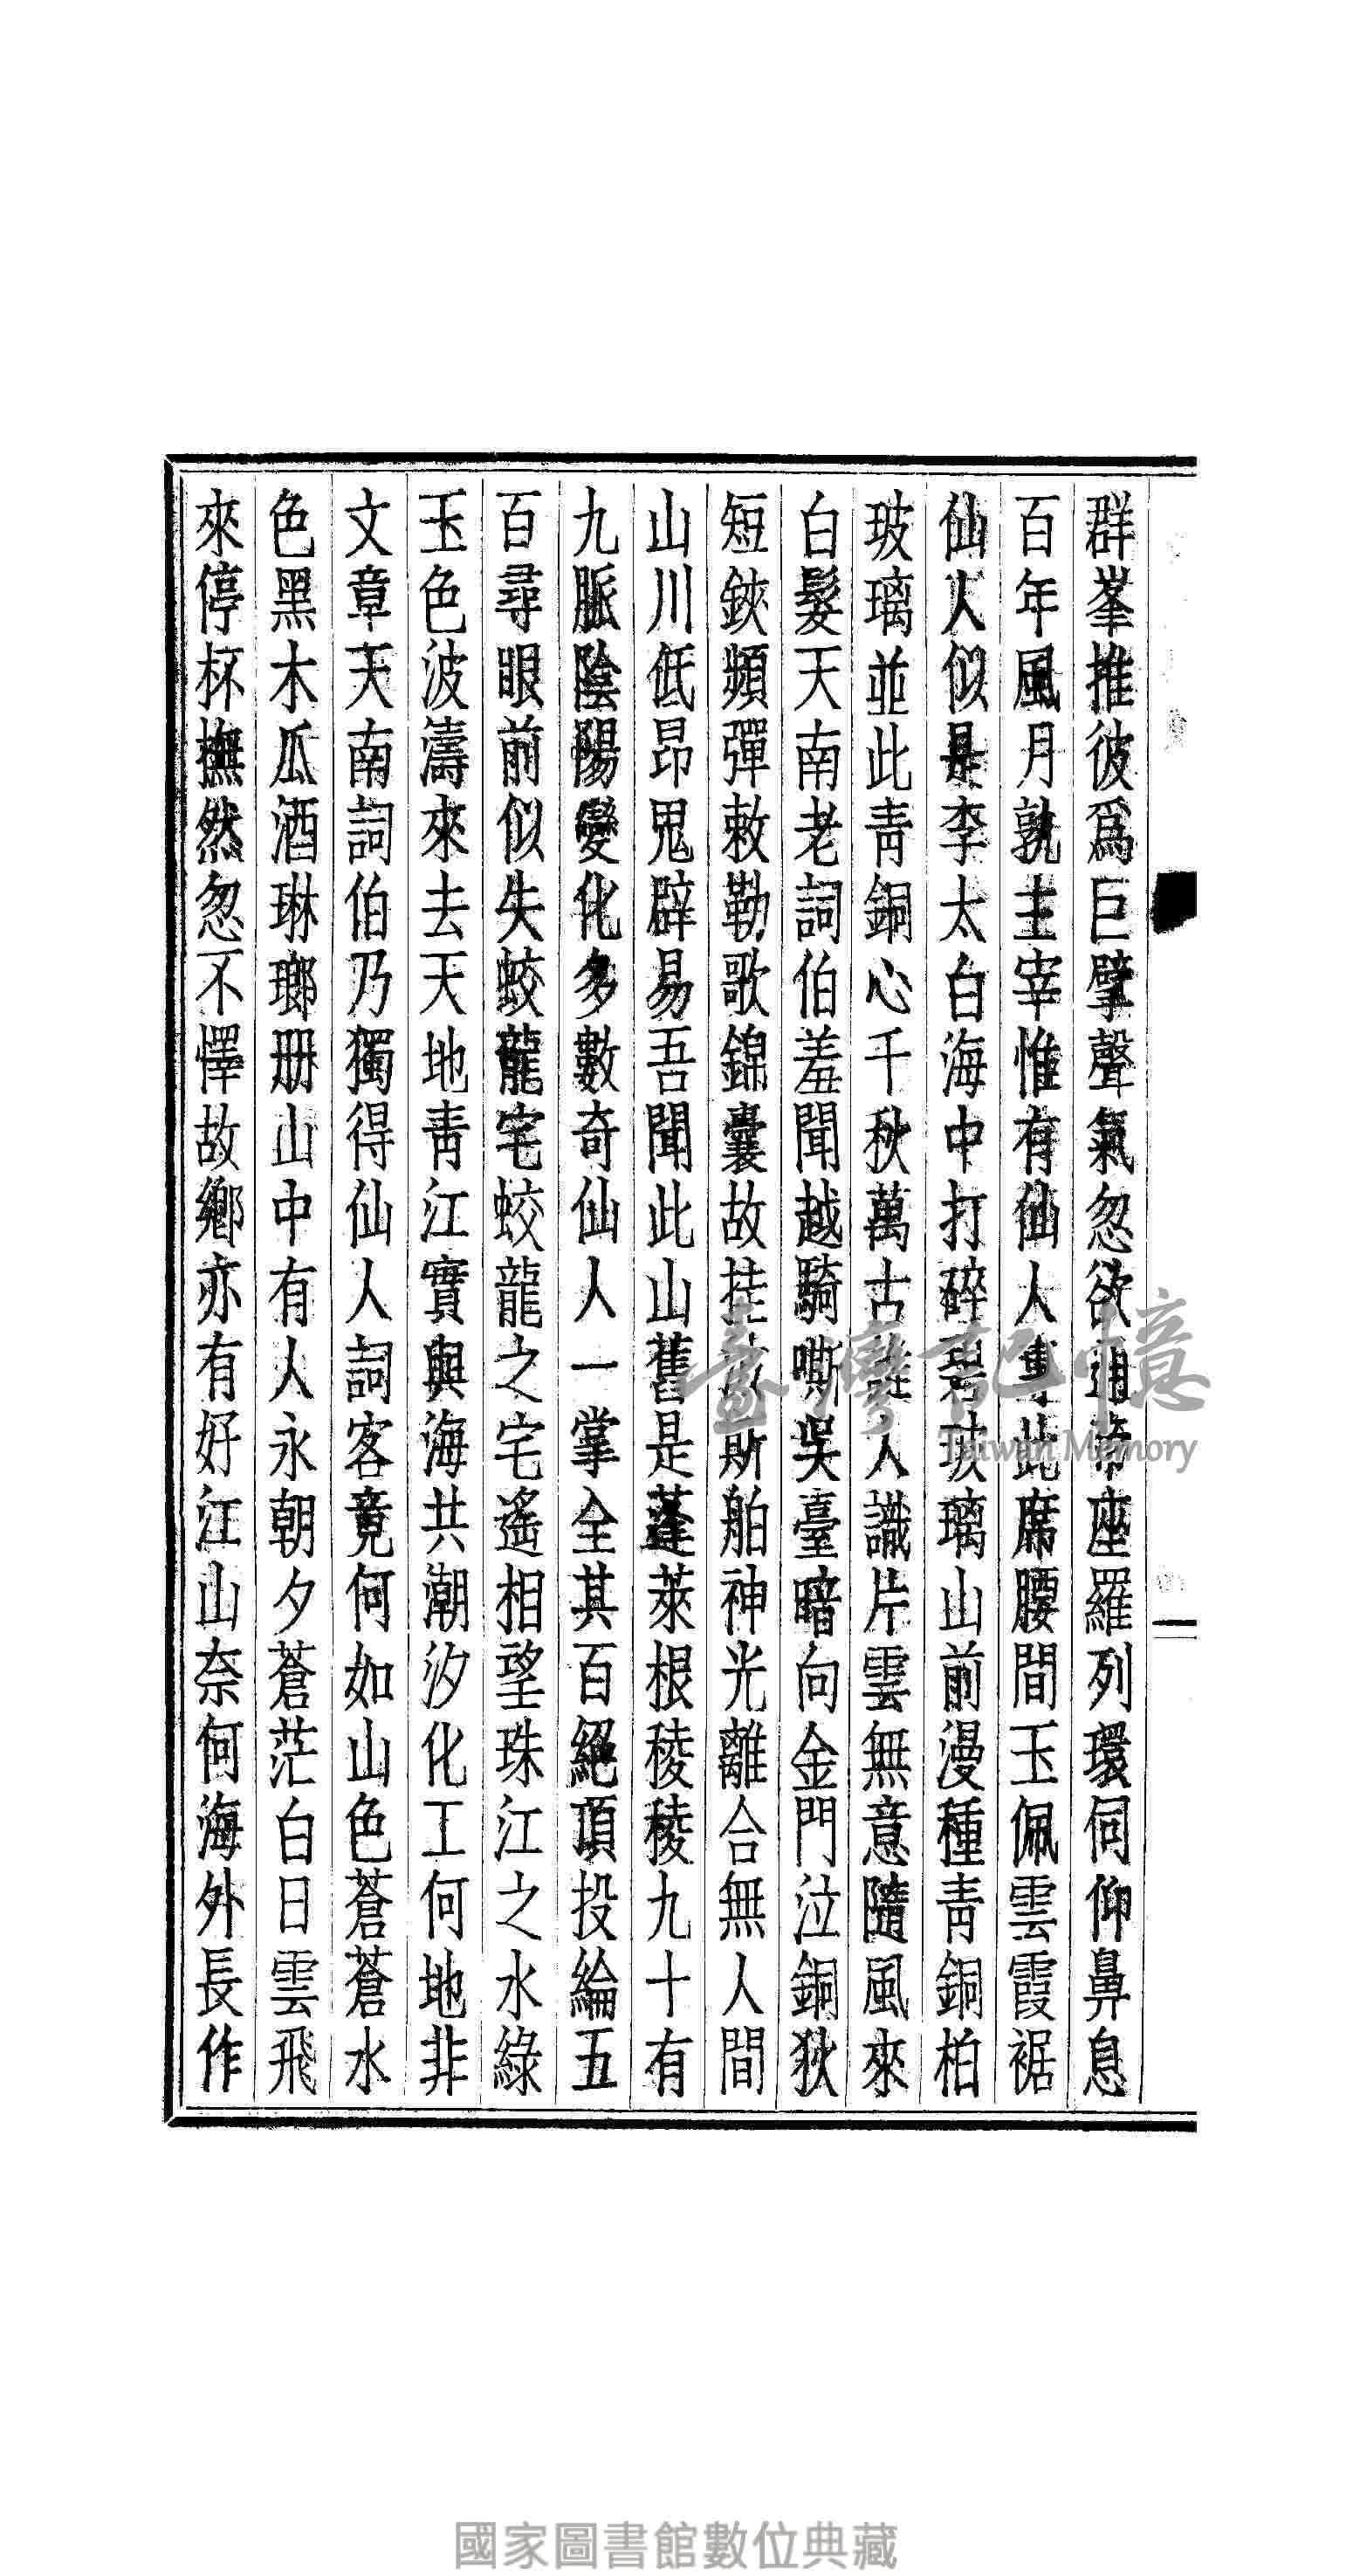 群峯推彼爲巨擘聲氣忽欲通帝座羅列環伺仰鼻息
百年風月孰主宰惟有仙人專此席腰間玉佩雲霞裾
仙人似是李太白海中打碎碧玻璃山前漫種青銅柏
玻璃並此青銅心千秋萬古誰人識片雲無意隨風來
白髮天南老詞伯羞聞越騎嘶吳臺暗向金門泣銅狄
短鋏頻彈敕勒歌錦囊故挂波斯舶神光離合無人間
山川低昂鬼辟易吾聞此山舊是蓬萊根稜稜九十有
九脈陰陽變化多數奇仙人一掌全其百絕頂投綸五
百尋眼前似失蛟龍宅蛟龍之宅遙相望珠江之水綠
玉色波濤來去天地青江實與海共潮汐化工何地非
文章天南詞伯乃獨得仙人詞客竟何如山色蒼蒼水
色黑木瓜酒琳瑯册山中有人永朝夕蒼茫白日雲飛
來停杯撫然忽不懌故鄉亦有好江山奈何海外長作
一
臺灣記憶
Taiwan Memory
國家圖書館數位典藏